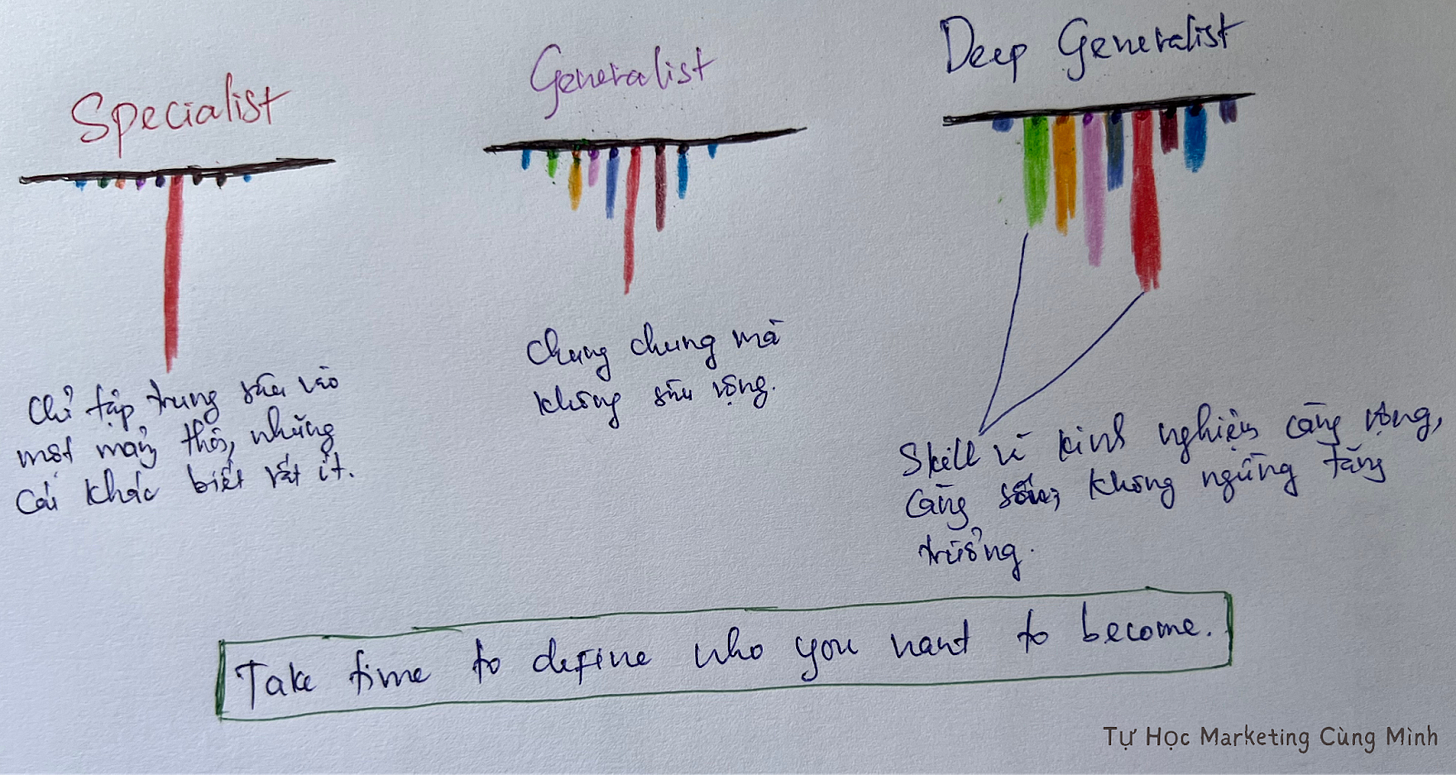 Specialist
Chỉ tập trung sâu vào
một mảng thôi, những
cái khác biết rất ít.
Generalist
Chung chung mà
không sâu rộng.
Deep Generalist
Skill và kinh nghiệm càng rộng,
càng sâu, không ngừng tăng
trưởng.
Take time to define who you want to become.
Tự Học Marketing Cùng Mình